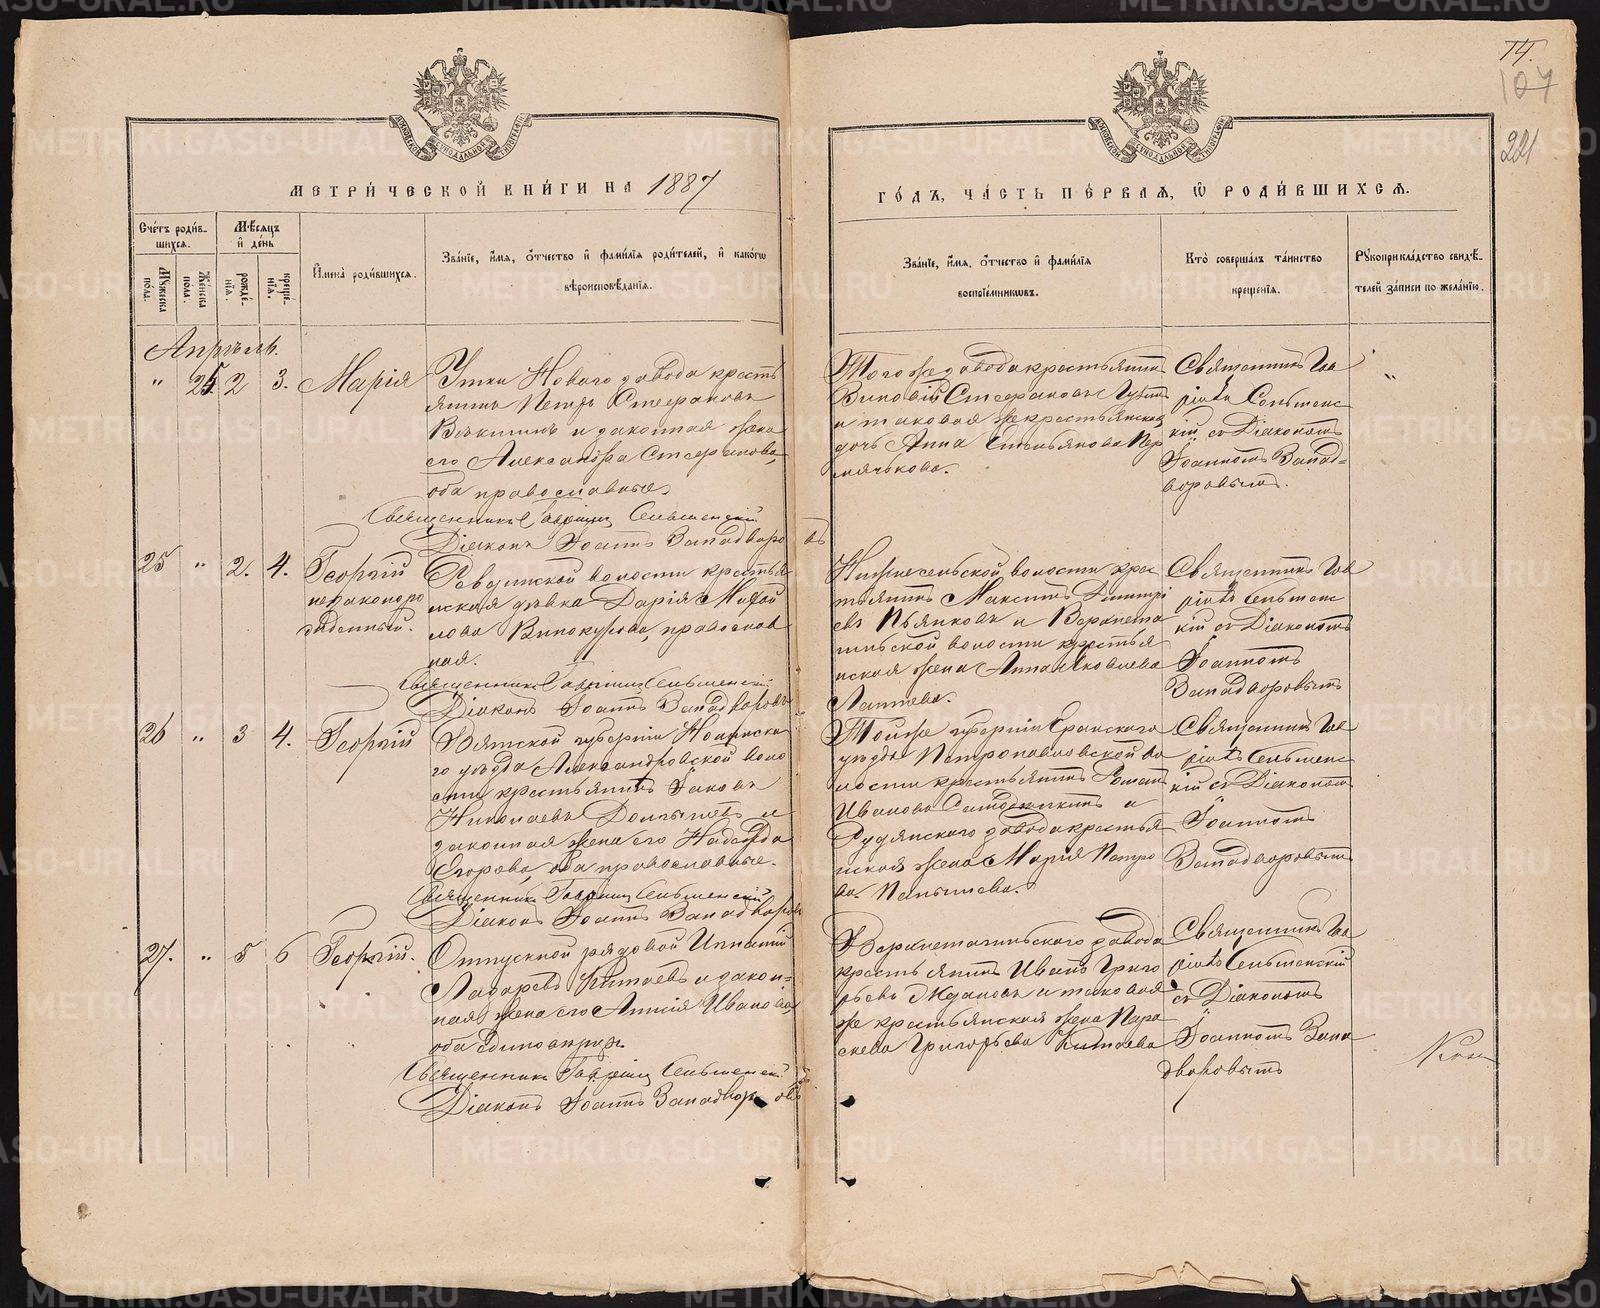 METRIKI.GASO-URAL.RU
14.
107
221
МЕТРИ́ЧЕСКОЙ КНИ́ГИ НА 1887
ГО́ДЪ, ЧА́СТЬ ПЕ́РВАѦ, Ѡ РОДИ́ВШИХСѦ.
Сче́тъ роди́в-
шихсѧ.
Мѣ́сѧцъ
и де́нь
Мꙋжеска
пола.
Же́нска
пола.
рожде́-
нїѧ.
креще́-
нїѧ.
Имена̀ роди́вшихсѧ.
Зва́нїе, и́мѧ, ѻ҆́тчество и фами́лїѧ роди́телей, и како́гѡ
вѣроисповѣ́данїѧ.
Зва́нїе, и́мѧ, ѻ҆́тчество и фами́лїѧ
воспрїе́мникѡвъ.
Кто̀ соверша́лъ та́инство
креще́нїѧ.
Рꙋкоприкла́дство свидѣ́-
телей за́писи по жела́нїю.
Апрѣль.
" 25. 2 3. Марія
Утки Новаго завода кресть
янинъ Петръ Стефановъ
и законная жена
его Александра Стефанова,
оба православные.
Священникъ Гавріилъ Сельменскій
Діаконъ Іоаннъ Западворовъ
Того же завода крестьянинъ
Стефановъ
и таковая же крестьянская
дочь Анна
Священникъ Гав
ріилъ Сельменс
кій съ Діакономъ
Іоанномъ Запад=
воровымъ.
"
25 " 2. 4. Георгій
незаконоро
жденный.
Ревдинской волости крестья
нская дѣвка Дарія Михай
лова Винокурова, православ
ная.
Священникъ Гавріилъ Сельменскій
Діаконъ Іоаннъ Западворовъ
волости крес
тьянинъ Максимъ Димитрі
евъ Пьянковъ и Верхнета
гильской волости крестья
нская жена Анна Яковлева
Лаптева.
Священникъ Гав
ріилъ Сельменс
кій съ Діакономъ
Іоанномъ
Западворовымъ
26 " 3 4. Георгій
Вятской губерніи Нолинска
го уѣзда Александровской воло
сти крестьянинъ Іаковъ
Николаевъ и
законная жена его Надежда
Егорова, оба православные.
Священникъ Гавріилъ Сельменскій
Діаконъ Іоаннъ Западворовъ
Той же губерніи Яранскаго
уѣзда Петропавловской во
лости крестьянинъ Романъ
Ивановъ и
Рудянскаго завода крестья
нская жена Марія Петро
ва
Священникъ Гав
ріилъ Сельменс
кій съ Діакономъ
Іоанномъ
Западворовымъ
27. " 5 6 Георгій.
Отпускной рядовой Игнатій
Лазаревъ Китаевъ и закон-
ная жена его Анисія Иванова,
оба единовѣрцы.
Священникъ Гавріилъ Сельменскій
Діаконъ Іоаннъ Западворовъ
Верхнетагильскаго завода
крестьянинъ Иванъ Григо
рьевъ Ждановъ и таковая
же крестьянская жена Пара
скева Григорьева Китаева
Священникъ Га
вріилъ Сельменскій
съ Діакономъ
Іоанномъ Запа
дворовымъ